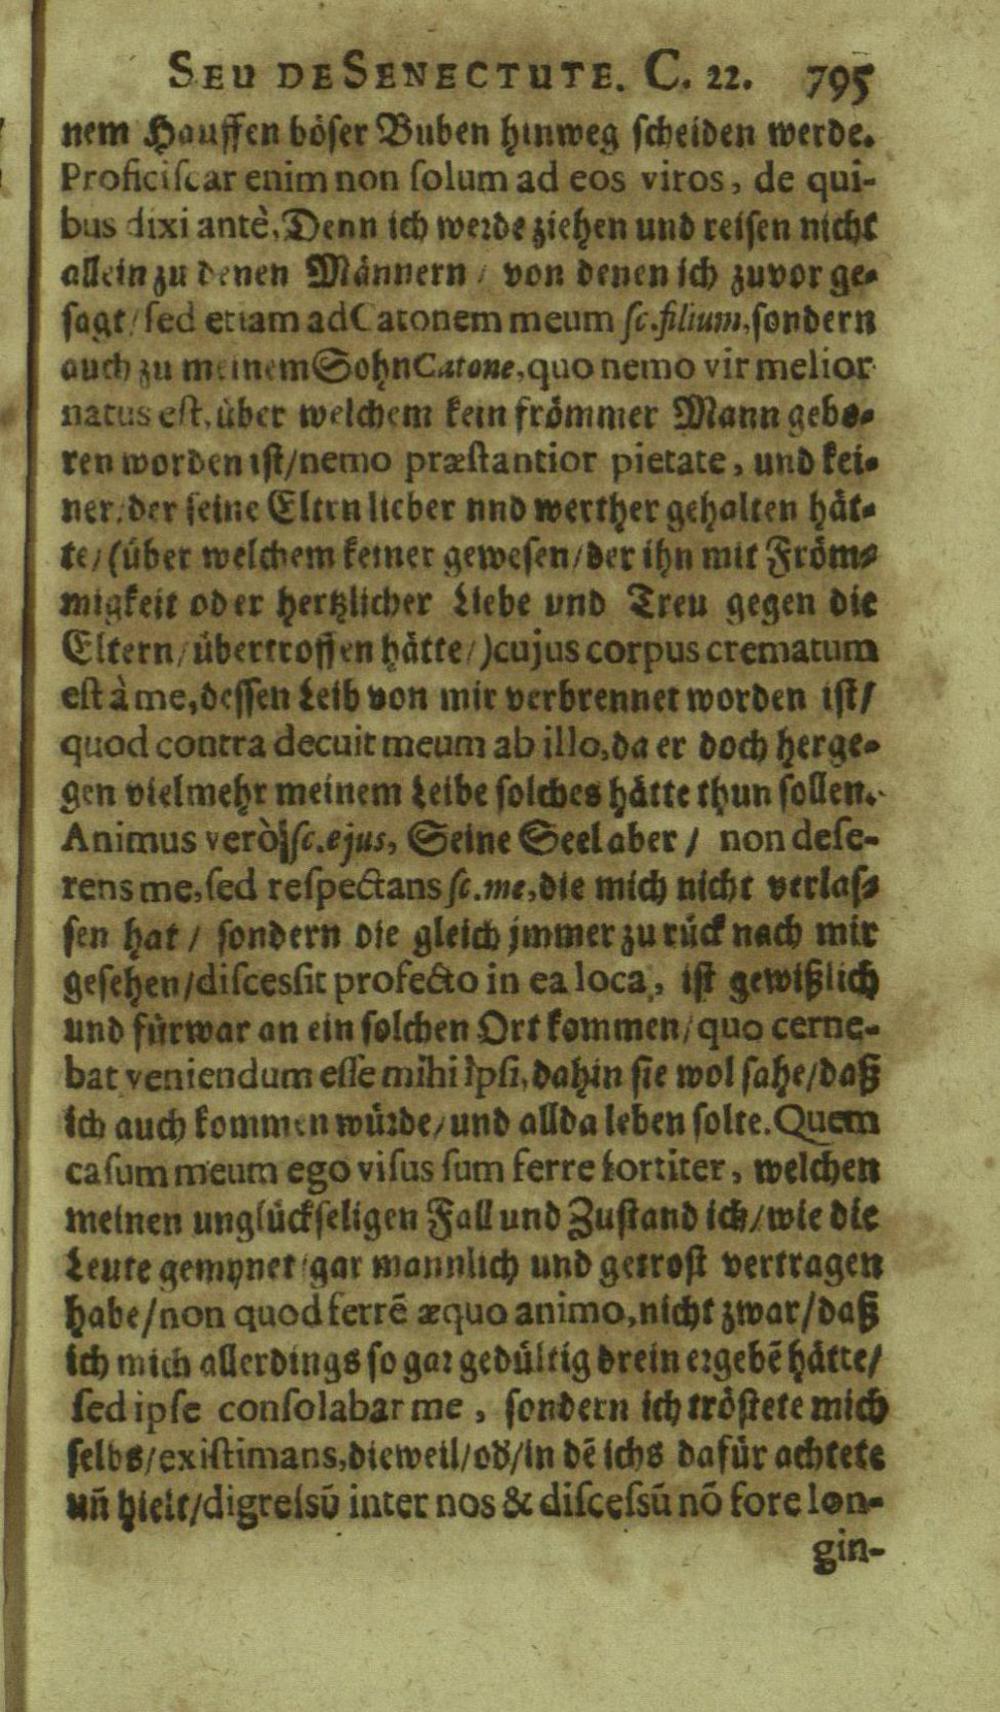 SEU DE SENECTUTE. C. 22. 795
nem Hauffen böser Buben hinweg scheiden werde.
Proficiscar enim non solum ad eos viros, de qui-
bus dixi antè, Denn ich werde ziehen und reisen nicht
allein zu denen Männern / von denen ich zuvor ge-
sagt / sed etiam ad Catonem meum sc. filium, sondern
auch zu meinem Sohn Catone, quo nemo vir melior
natus est, über welchem kein frömmer Mann gebo-
ren worden ist / nemo præstantior pietate, und kei-
ner / der seine Eltrn lieber nnd werther gehalten hät-
te / (über welchem keiner gewesen / der ihn mit Fröm-
migkeit oder hertzlicher Liebe vnd Treu gegen die
Eltern / übertroffen hätte /) cujus corpus crematum
est à me, dessen Leib von mir verbrennet worden ist /
quod contra decuit meum ab illo, da er doch herge-
gen vielmehr meinem Leibe solches hätte thun sollen.
Animus verò sc. ejus, Seine Seel aber / non dese-
rens me, sed respectans sc. me, die mich nicht verlas-
sen hat / sondern die gleich jmmer zu rück nach mir
gesehen / discessit profecto in ea loca, ist gewißlich
und fürwar an ein solchen Ort kommen / quo cerne-
bat veniendum esse mihi ipsi, dahin sie wol sahe / daß
ich auch kommen würde / und allda leben solte. Quem
casum meum ego visus sum ferre fortiter, welchen
meinen unglückseligen Fall und Zustand ich / wie die
Leute gemynet / gar mannlich und getrost vertragen
habe / non quod ferrē æquo animo, nicht zwar / daß
ich mich allerdings so gar gedültig drein ergebē hätte /
sed ipse consolabar me, sondern ich tröstete mich
selbs / existimans, dieweil / oď / in dē ichs dafür achtete
uñ hielt / digressū inter nos & discessū nō fore lon-
gin-